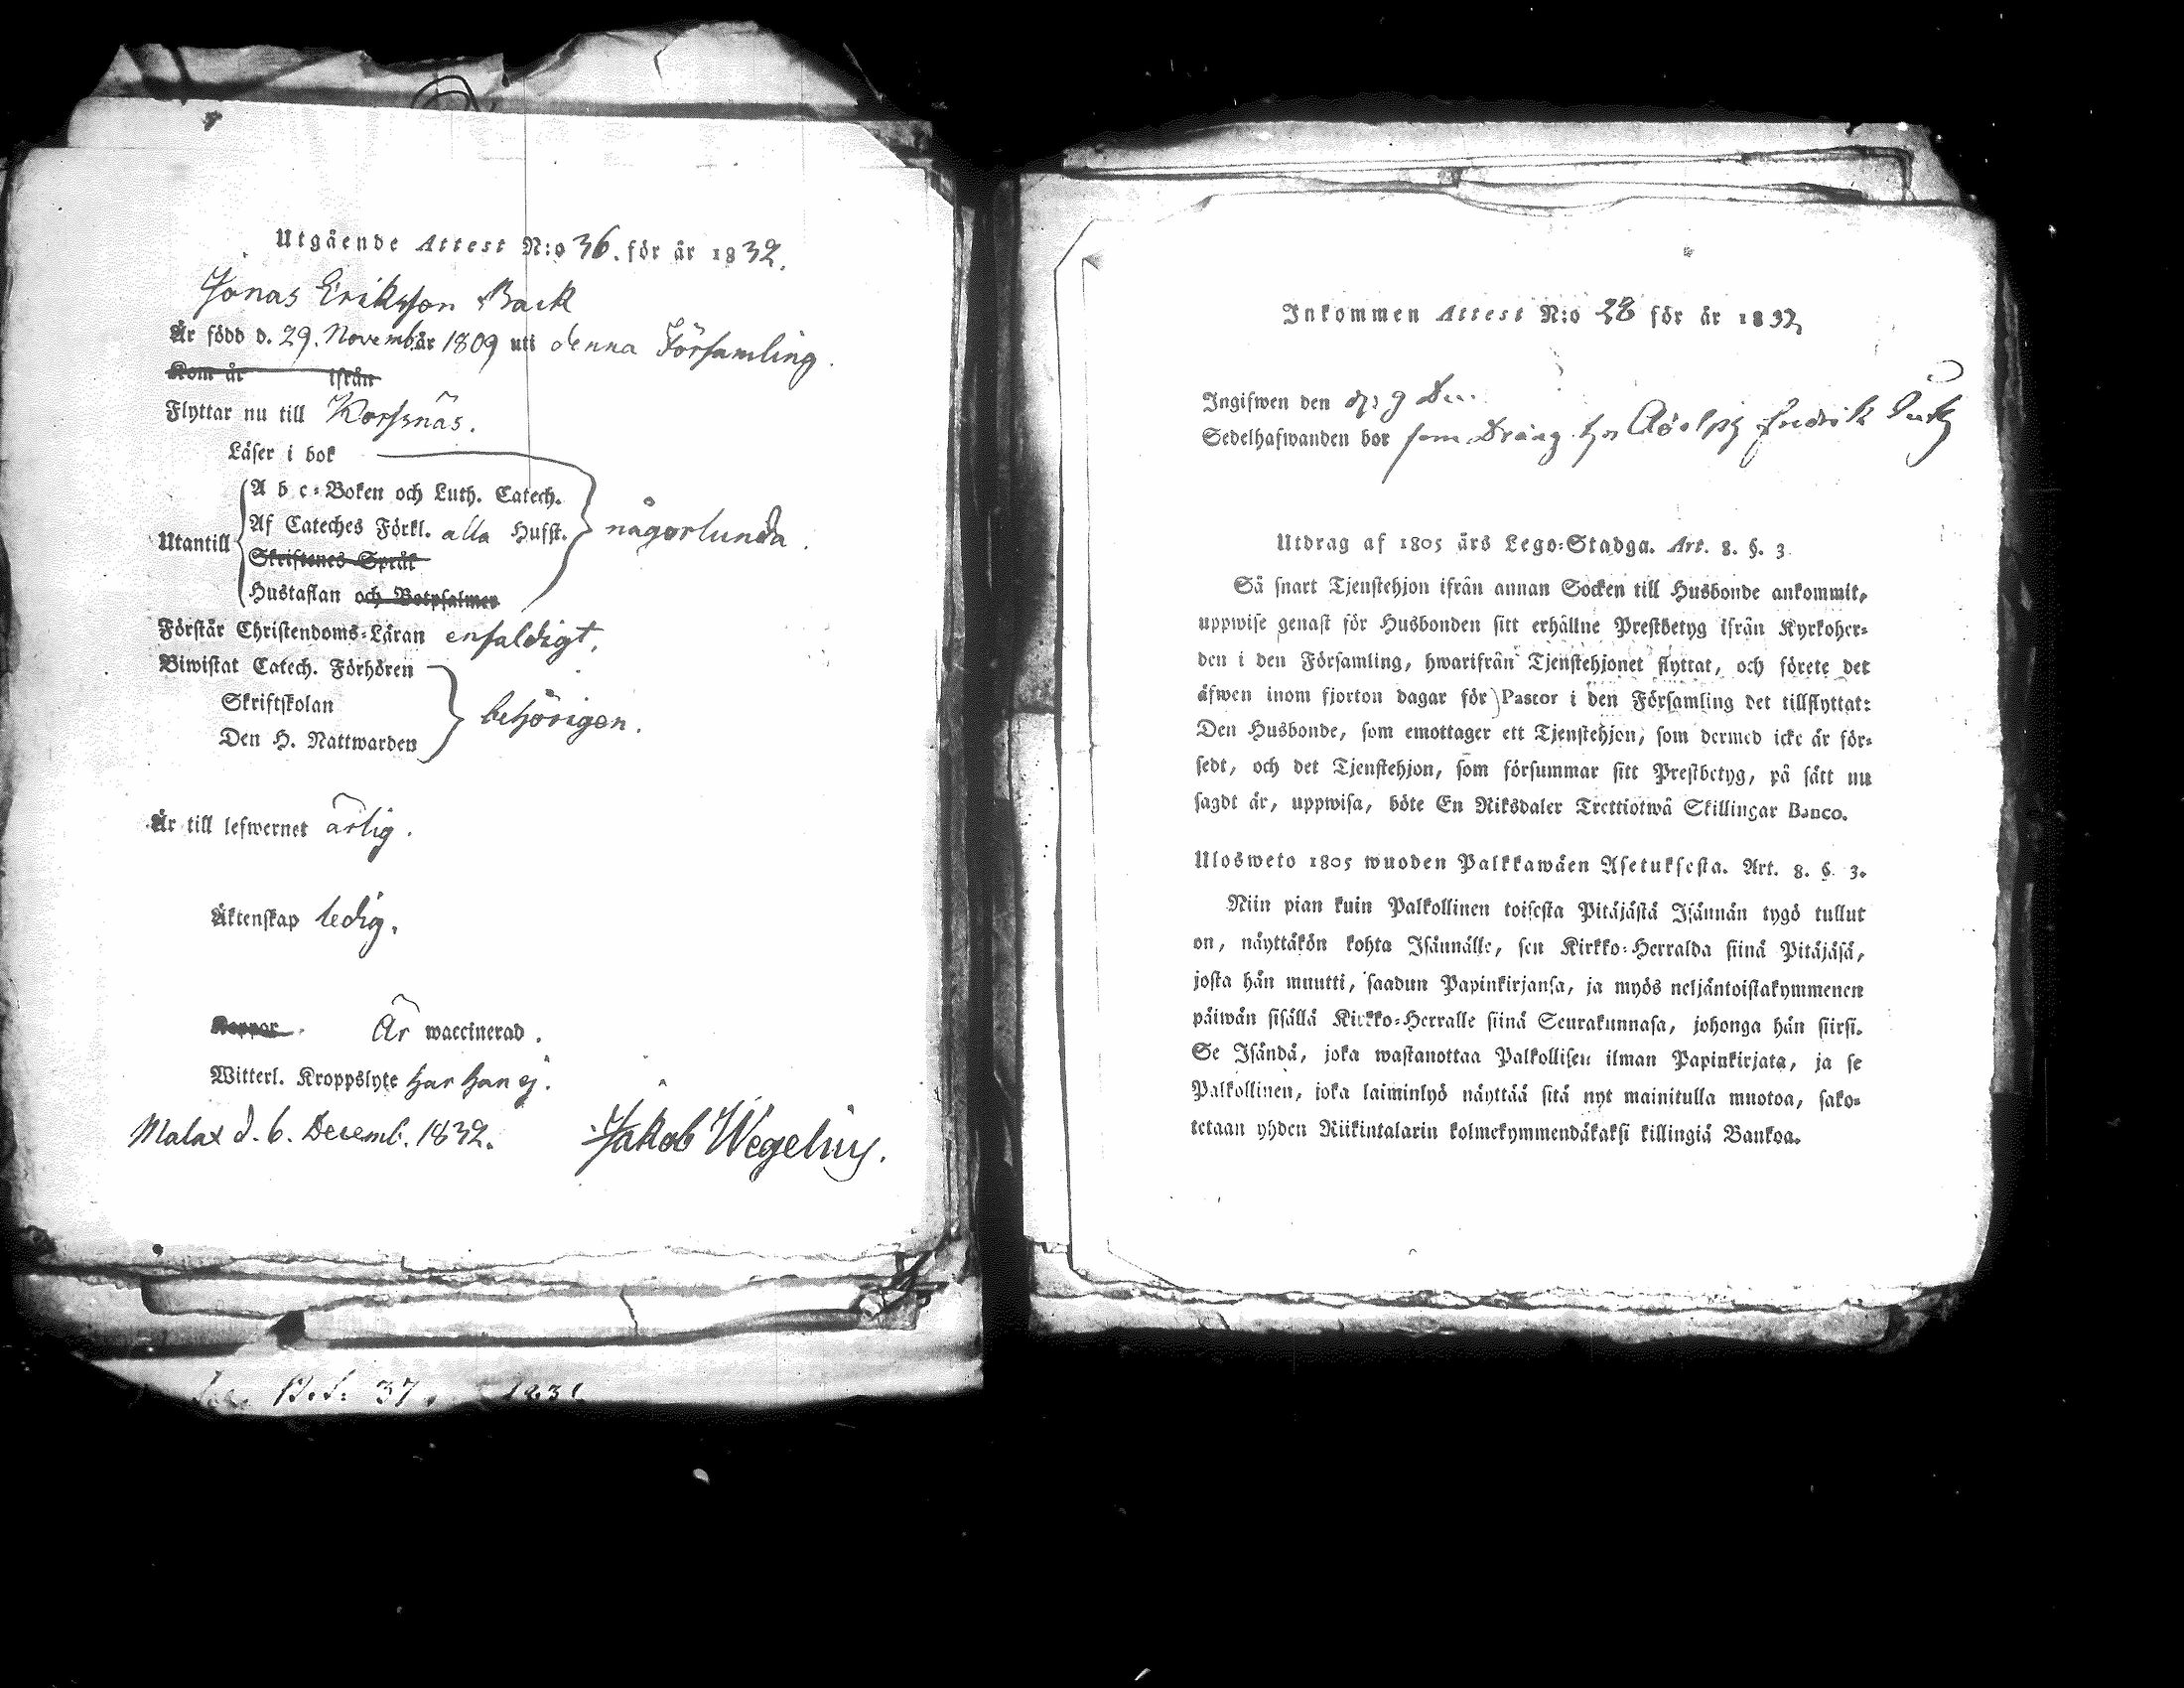 Utgående Attest N:o 36. för år 1832.
Jonas Eriksson Back
Är född d. 29. Novemb. år 1809 uti denna Församling.
Kom år ifrån
Flyttar nu till Korsnäs.
Läser i bok
A b c-Boken och Luth. Catech.
Af Cateches Förkl. alla Hufst.
någorlunda.
Utantill
Skriftenes Språk
Hustaflan och Botpsalmer
Förstår Christendoms-Läran enfaldigt.
Biwistat Catech. Förhören
Skriftskolan
behörigen.
Den H. Nattwarden
Är till lefwernet ärlig.
Äktenskap ledig.
Koppor. Är waccinerad.
Witterl. Kroppslyte har han ej.
Malax d. 6. Decemb. 1832. Jakob Wegelius.
37.
Inkommen Attest N:o 28 för år 1832
Ingifwen den 9 De
Sedelhafwanden bor som Dräng hos Adolph Fredrik
Utdrag af 1805 års Lego-Stadga. Art. 8. §. 3
Så snart Tjenstehjon ifrån annan Socken till Husbonde ankommit,
uppwise genast för Husbonden sitt erhållne Prestbetyg ifrån Kyrkoher-
den i den Församling, hwarifrån Tjenstehjonet flyttat, och förete det
äfwen inom fjorton dagar för Pastor i den Församling det tillflyttat:
Den Husbonde, som emottager ett Tjenstehjon, som dermed icke är för-
sedt, och det Tjenstehjon, som försummar sitt Prestbetyg, på sätt nu
sagdt är, uppwisa, böte En Riksdaler Trettiotwå Skillingar Banco.
Ulosweto 1805 wuoden Palkkawäen Asetuksesta. Art. 8. §. 3.
Niin pian kuin Palkollinen toisesta Pitäjästä Isännän tygö tullut
on, näyttäkön kohta Isännälle, sen Kirkko-Herralda siinä Pitäjäsä,
josta hän muutti, saadun Papinkirjansa, ja myös neljäntoistakymmenen
päiwän sisällä Kirkko-Herralle siinä Seurakunnasa, johonga hän siirsi.
Se Isändä, joka wastanottaa Palkollisen ilman Papinkirjata, ja se
Palkollinen, joka laiminlyö näyttää sitä nyt mainitulla muotoa, sako-
tetaan yhden Riikintalarin kolmekymmendäkaksi killingiä Bankoa.